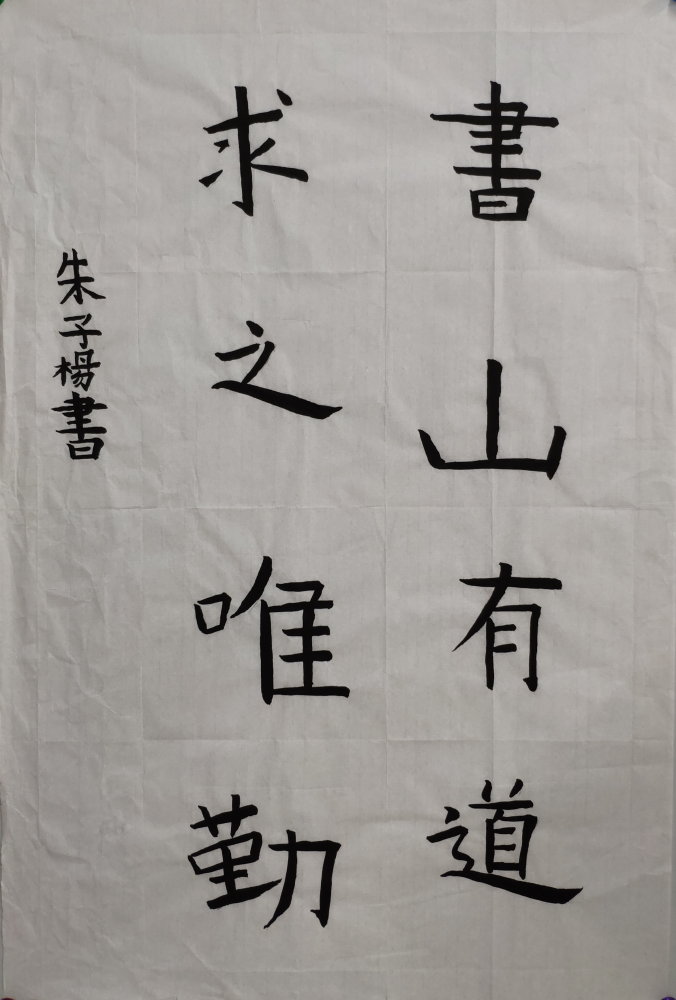 書山有道
求之唯勤
朱子楊書